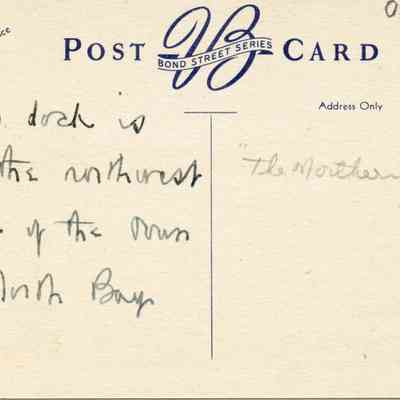 POST CARD
BOND STREET SERIES
Address Only
dock is
the northwest
of the town
North Bay
"The Northern